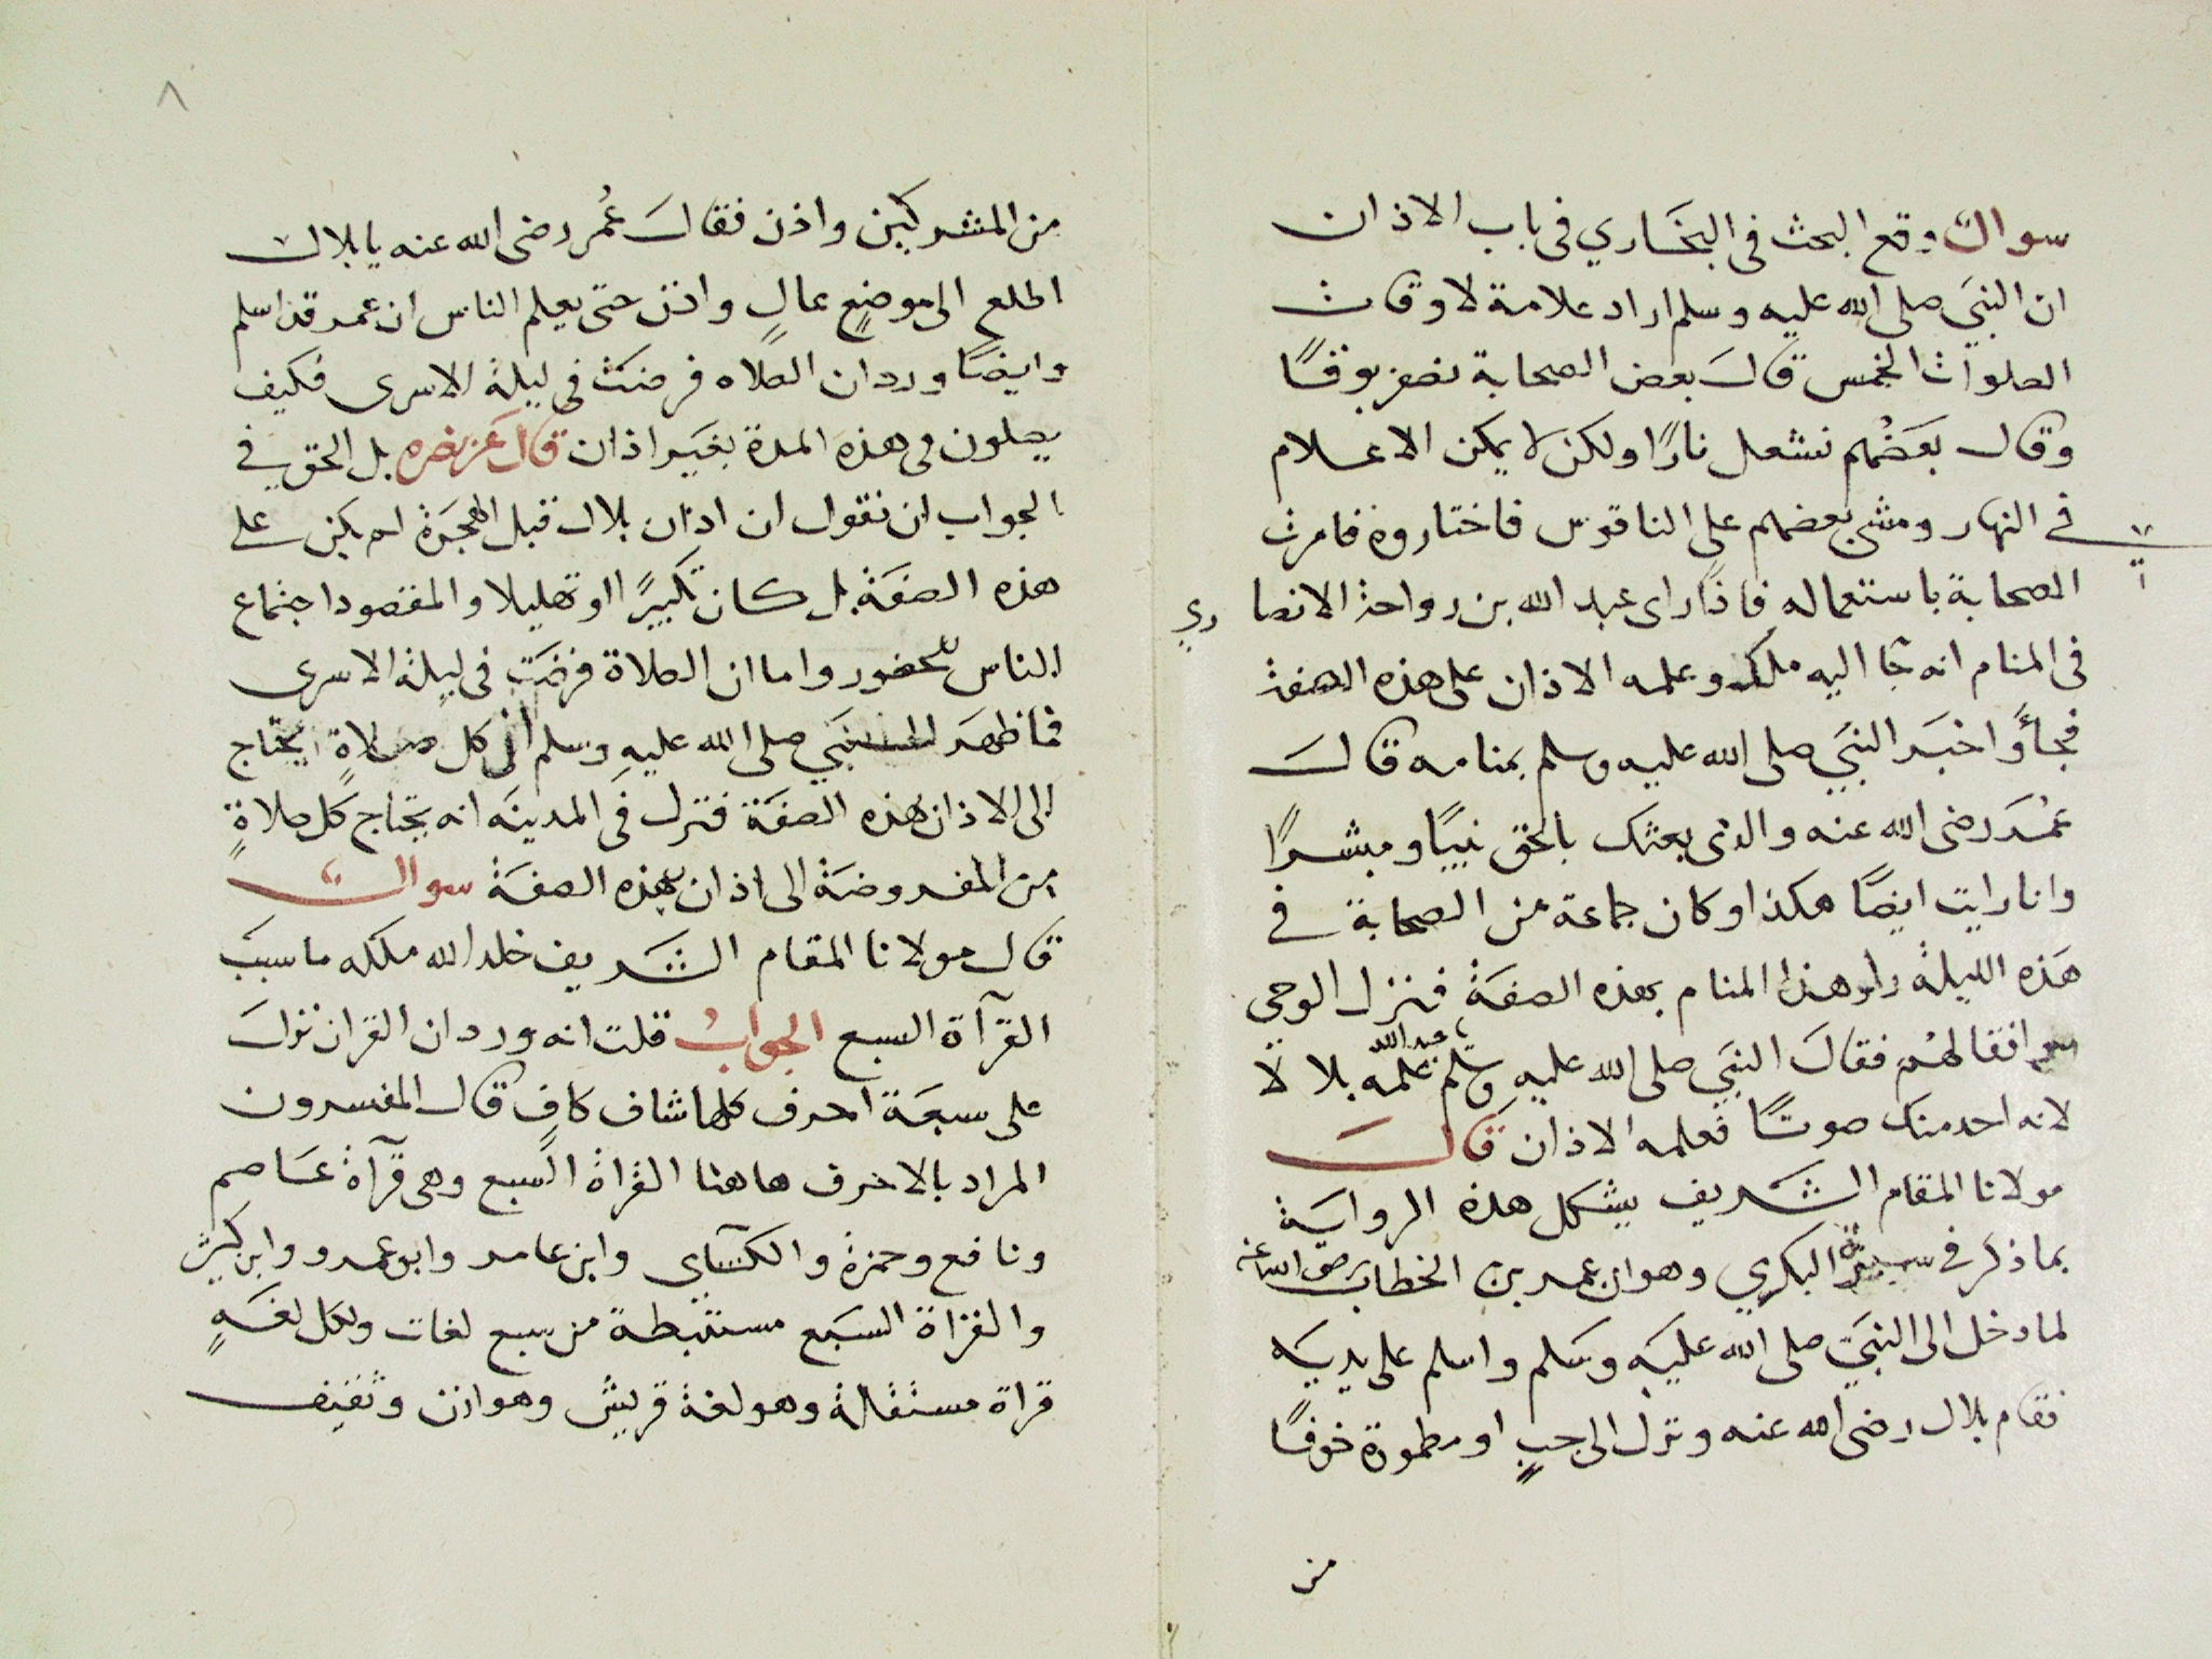 سوال وقع البحث في البخاري في باب الاذان
ان النبي صلى الله عليه وسلم اراد علامة لاوقات
الصلوات الخمس قال بعض الصحابة نضرب بوقًا
وقال بعضُهم نشعل نارًا ولكن لا يمكن الاعلام
في النهار ومشى بعضهم على الناقوس فاختاروه فامرت
الصحابة باستعماله فاذا راى عبد الله بن رواحة الانصاري
في المنام انه جا اليه ملك وعلمه الاذان على هذه الصفة
فجأ واخبر النبي صلى الله عليه وسلم بمنامه قال
عمر رضى الله عنه والذى بعثك بالحق نبيًا ومبشرًا
وانا رايت ايضًا هكذا وكان جماعة من الصحابة في
هذه الليلة راو هذا المنام بهذه الصفة فنزل الوحي
موافقا لهم فقال النبي صلى الله عليه وسلم يا عبد الله علمه بلالا
لانه احد منك صوتًا فعلمه الاذان قال
مولانا المقام الشريف يشكل هذه الرواية
بما ذكر في سيرة البكري وهو ان عمر بن الخطاب رضى الله عنه
لما دخل الى النبي صلى الله عليه وسلم واسلم على يديه
فقام بلال رضى الله عنه ونزل الى جبٍ او مطمورة خوفًا
من
٨
من المشركين واذن فقال عُمر رضى الله عنه يا بلال
اطلع الى موضعٍ عالٍ واذن حتى يعلم الناس ان عمر قد اسلم
وايضًا ورد ان الصلاه فرضت في ليلة الاسرى فكيف
يصلون في هذه المدة بغير اذان قال عز نصره بل الحق في
الجواب ان نقول ان اذان بلال قبل الهجرة لم يكن على
هذه الصفة بل كان تكبيرًا او تهليلا والمقصود اجتماع
الناس للحضور واما ان الصلاة فرضت في ليلة الاسرى
فما ظهر للنبي صلى الله عليه وسلم ان كل صلاةٍ يحتاج
الى الاذان بهذه الصفة فنزل في المدينه انه يحتاج كل صلاةٍ
من المفروضة الى اذان بهذه الصفة سوال
قال مولانا المقام الشريف خلد الله ملكه ما سبب
القرآة السبع الجواب قلت انه ورد ان القران نزل
على سبعة احرف كلها شاف كافٍ قال المفسرون
المراد بالاحرف هاهنا القراة السبع وهى قرآة عاصم
ونافع وحمزة والكسآي وابن عامر وابو عمرو وابن كثير
والقراة السبع مستنبطة من سبع لغات ولكل لغةٍ
قراة مستقلة وهو لغة قريش وهوازن وثقيف